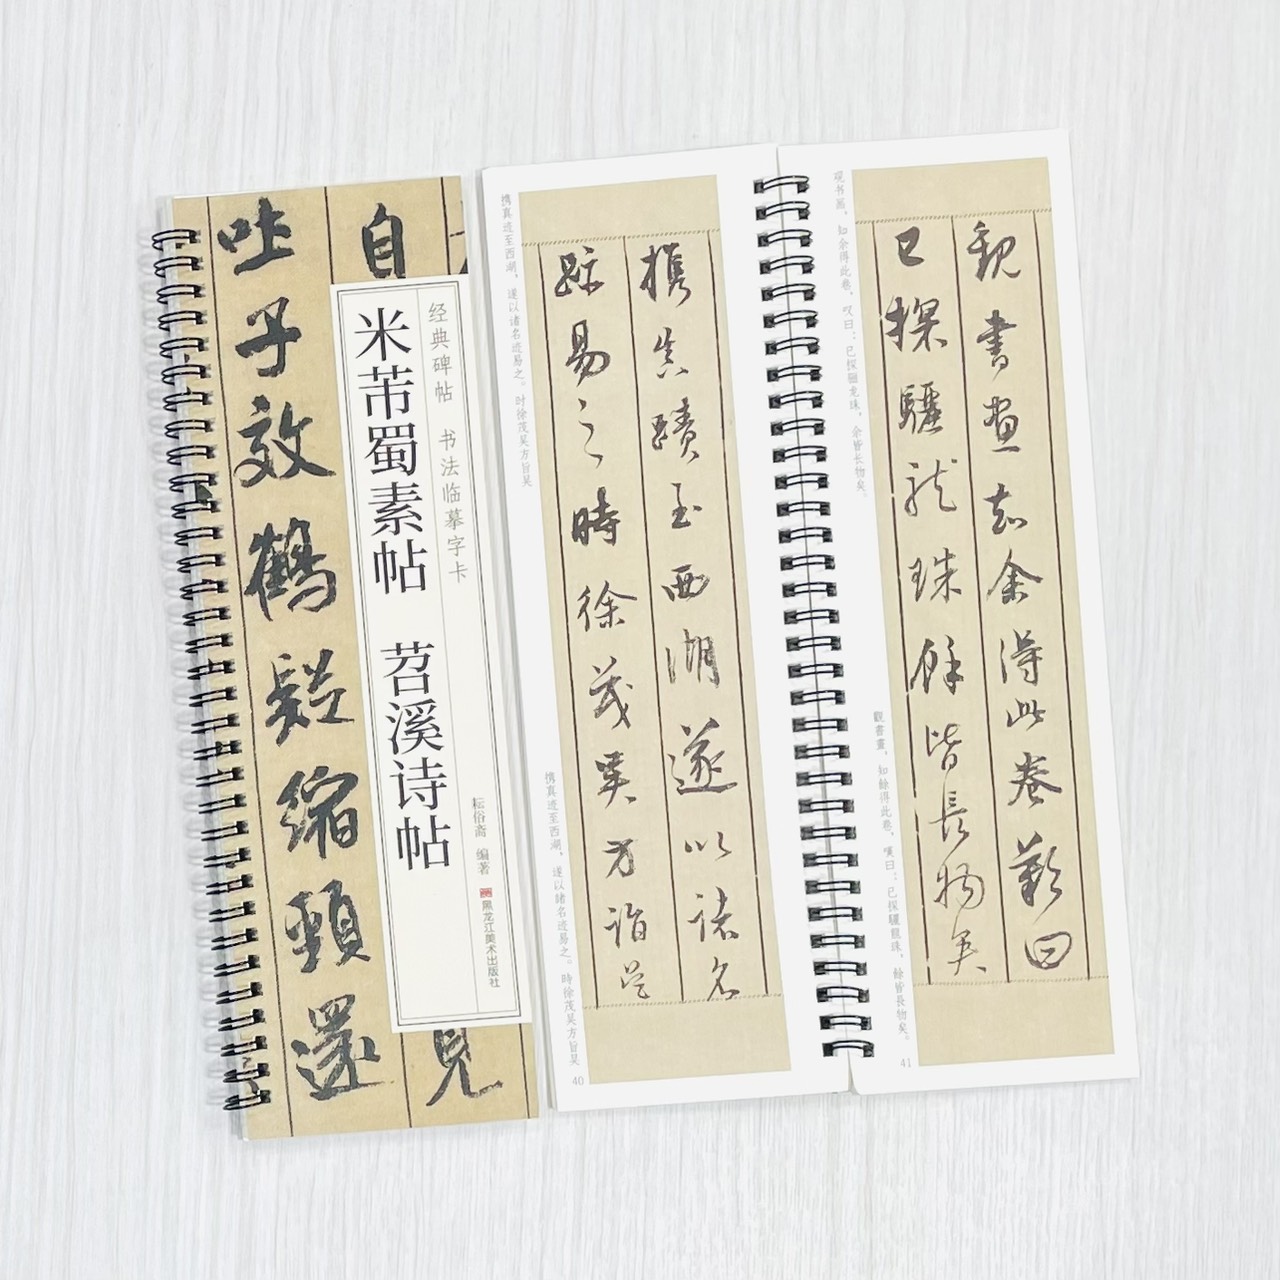 吐子效鶴疑縮頸還
自
見
经典碑帖 书法临摹字卡
米芾蜀素帖 苕溪诗帖
耘俗斋 编著
黑龙江美术出版社
携真迹至西湖，遂以诸名迹易之。时徐茂吴方旨吴
攜真蹟至西湖遂以諸名
跡易之時徐茂吴方詣吴
携真迹至西湖，遂以諸名迹易之。時徐茂吴方旨吴
40
观书画，知余得此卷，叹曰：已探骊龙珠，余皆长物矣。
觀書畫知余得此卷歎曰
已探驪龍珠餘皆長物矣
觀書畫，知餘得此卷，嘆曰：已探驪龍珠，餘皆長物矣。
41